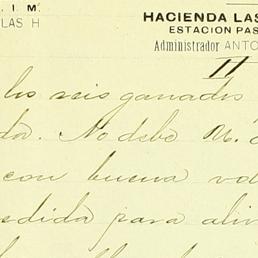 . I. M.
LAS H
HACIENDA LAS
ESTACION PAS
Administrador ANTO
11
los seis ganados
dor. No debe U.
con buena vo
edida para aliv